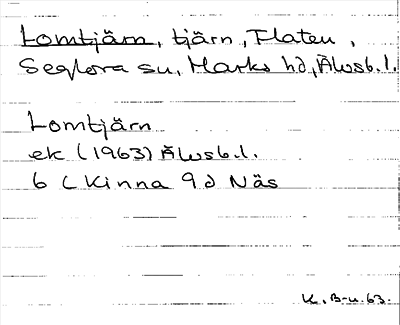 Lomtjärn, tjärn, Flaten,
Seglora sn, Marks hd, Älvsb.l.
Lomtjärn
ek (1963) Älvsb.l.
6 C Kinna 9 d Näs
K. B-n. 63.